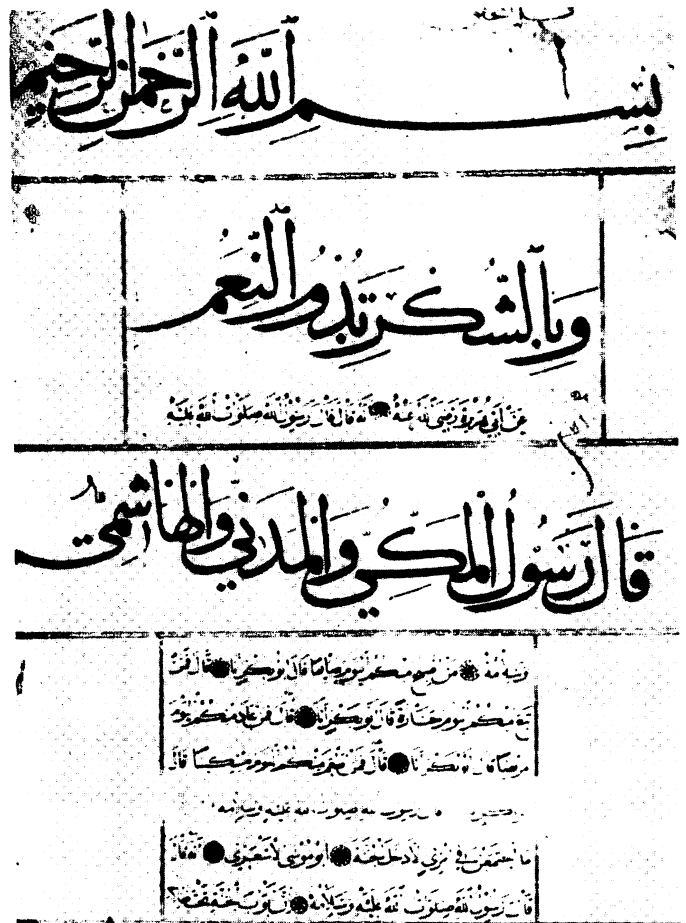 بسم الله الرحمن الرحيم
وبالشكر تدوم النعم
عن أبي هريرة رضي الله عنه أنه قال قال رسول الله صلوات الله عليه
قال رسول المكي والمدني والهاشمي
وسلامه من أصبح منكم اليوم صائما قال أبو بكر أنا قال فمن
تبع منكم اليوم جنازة قال أبو بكر أنا قال فمن عاد منكم اليوم
مريضا قال أبو بكر أنا قال فمن أطعم منكم اليوم مسكينا قال
قال رسول الله صلوات الله عليه وسلامه
ما اجتمعن في امرئ إلا دخل الجنة أبو موسى الأشعري أنه قال
قال رسول الله صلوات الله عليه وسلامه إن أبواب الجنة